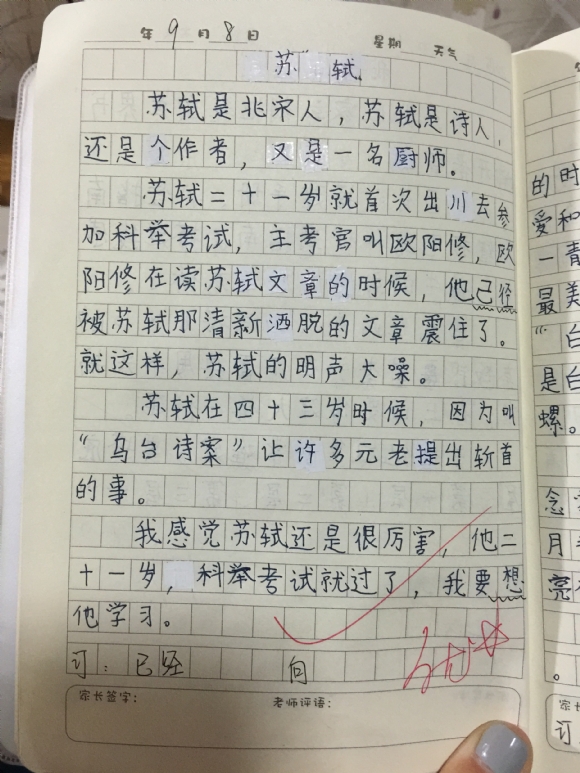 年 9 月 8 日 星期 天气
苏轼
苏轼是北宋人，苏轼是诗人，
还是个作者，又是一名厨师。
苏轼二十一岁就首次出川去参
加科举考试，主考官叫欧阳修，欧
阳修在读苏轼文章的时候，他己径
被苏轼那清新洒脱的文章震住了。
就这样，苏轼的明声大噪。
苏轼在四十三岁时候，因为叫
“乌台诗案”让许多元老提出斩首
的事。
我感觉苏轼还是很厉害，他二
十一岁，科举考试就过了，我要想
他学习。
订：已经 向
家长签字： 老师评语：
的时
爱和
一青
最美
“台
是台
螺。
念
月
亮
。
家长
订：